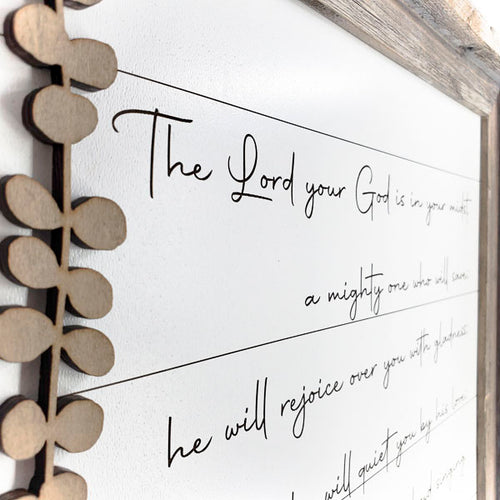 The Lord your God is in your midst,
a mighty one who will save.
he will rejoice over you with gladness
will quiet you by his love
singing